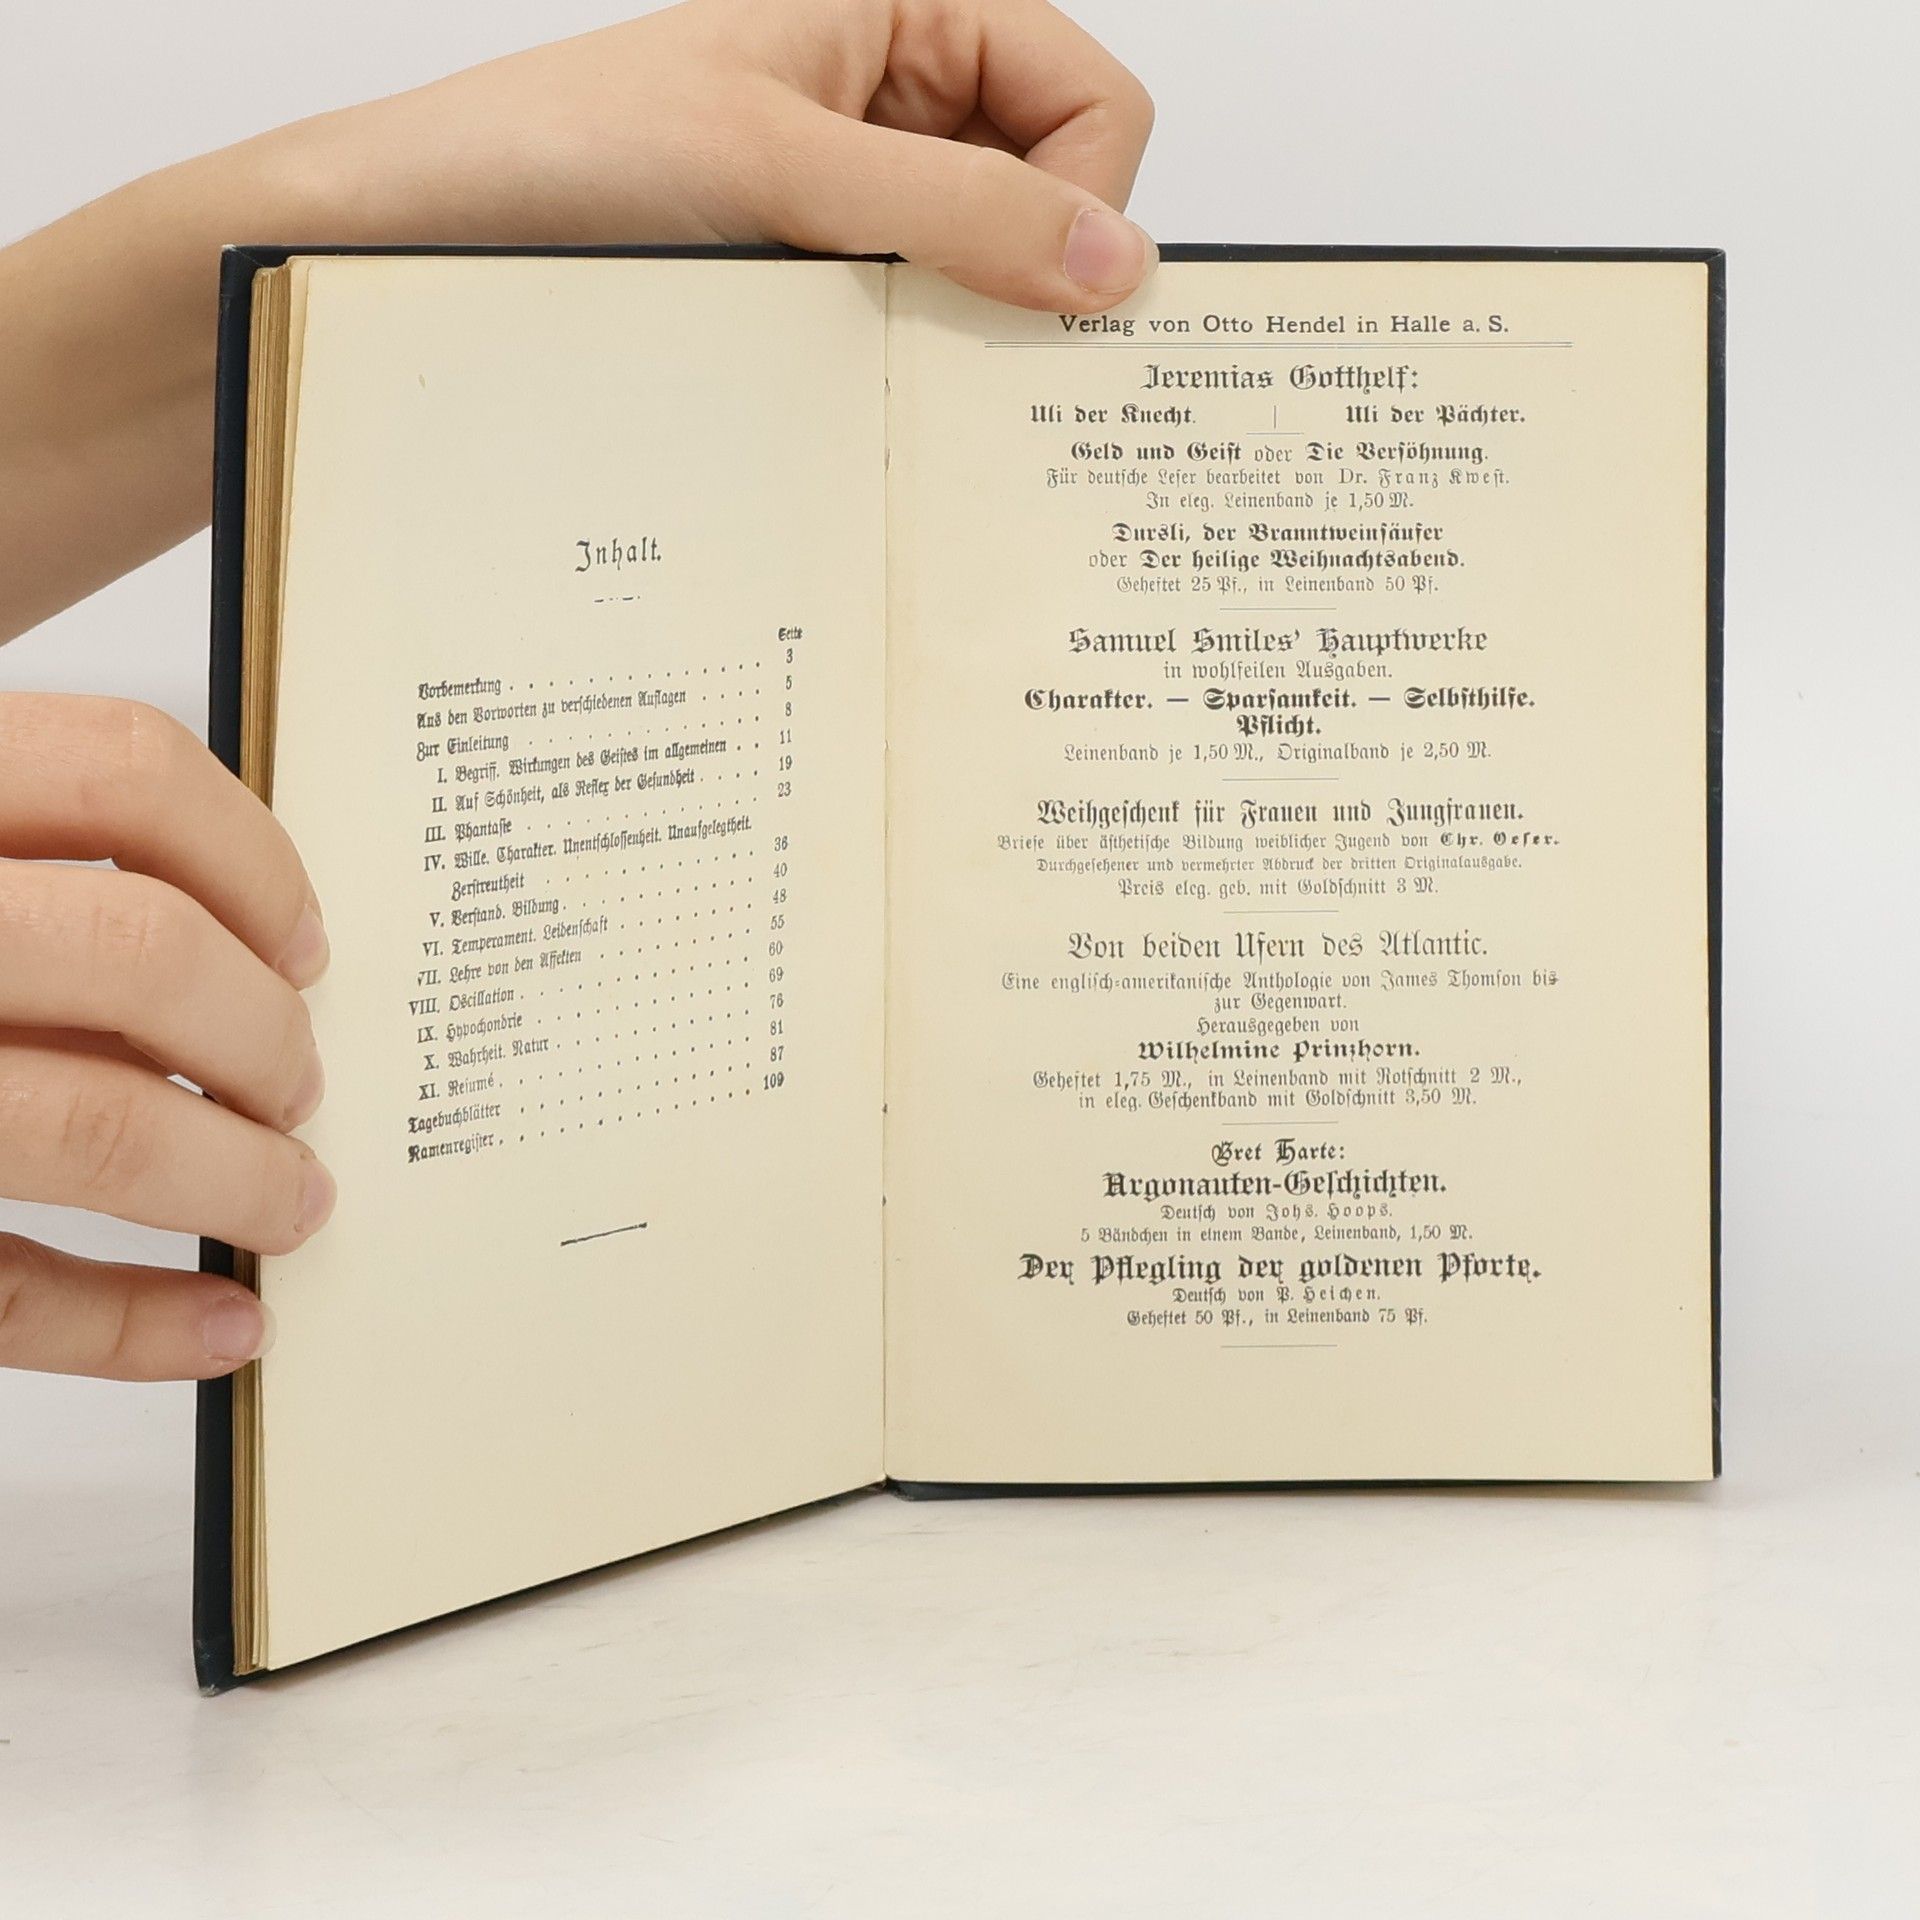 Inhalt.
Seite
Vorbemerkung . . . . . . . . . . . . . 3
Aus den Vorworten zu verschiedenen Auflagen . . . . 5
Zur Einleitung . . . . . . . . . . . . 8
I. Begriff. Wirkungen des Geistes im allgemeinen . . 11
II. Auf Schönheit, als Reflex der Gesundheit . . . . 19
III. Phantasie . . . . . . . . . . . . 23
IV. Wille. Charakter. Unentschlossenheit. Unaufgelegtheit.
Zerstreutheit . . . . . . . . . . . 36
V. Verstand. Bildung . . . . . . . . . . 40
VI. Temperament. Leidenschaft . . . . . . . 48
VII. Lehre von den Affekten . . . . . . . . 55
VIII. Oscillation . . . . . . . . . . . . 60
IX. Hypochondrie . . . . . . . . . . . 69
X. Wahrheit. Natur . . . . . . . . . . 76
XI. Resumé . . . . . . . . . . . . . 81
Tagebuchblätter . . . . . . . . . . . . 87
Namenregister . . . . . . . . . . . . . 109
Verlag von Otto Hendel in Halle a. S.
Jeremias Gotthelf:
Uli der Knecht. | Uli der Pächter.
Geld und Geist oder Die Versöhnung.
Für deutsche Leser bearbeitet von Dr. Franz Kwest.
In eleg. Leinenband je 1,50 M.
Dursli, der Branntweinsäufer
oder Der heilige Weihnachtsabend.
Geheftet 25 Pf., in Leinenband 50 Pf.
Samuel Smiles' Hauptwerke
in wohlfeilen Ausgaben.
Charakter. — Sparsamkeit. — Selbsthilfe.
Pflicht.
Leinenband je 1,50 M., Originalband je 2,50 M.
Weihgeschenk für Frauen und Jungfrauen.
Briefe über ästhetische Bildung weiblicher Jugend von Chr. Oeser.
Durchgesehener und vermehrter Abdruck der dritten Originalausgabe.
Preis eleg. geb. mit Goldschnitt 3 M.
Von beiden Ufern des Atlantic.
Eine englisch-amerikanische Anthologie von James Thomson bis
zur Gegenwart.
Herausgegeben von
Wilhelmine Prinzhorn.
Geheftet 1,75 M., in Leinenband mit Rotschnitt 2 M.,
in eleg. Geschenkband mit Goldschnitt 3,50 M.
Bret Harte:
Argonauten-Geschichten.
Deutsch von Johs. Hoops.
5 Bändchen in einem Bande, Leinenband, 1,50 M.
Der Pflegling der goldenen Pforte.
Deutsch von P. Heichen.
Geheftet 50 Pf., in Leinenband 75 Pf.